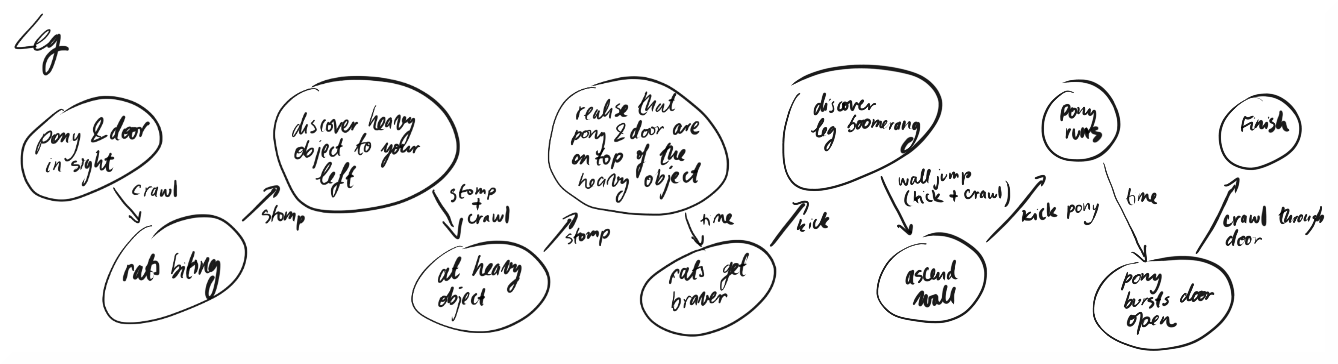 Leg
pony & door
in sight
crawl
rats biting
stomp
discover heavy
object to your
left
stomp
+
crawl
at heavy
object
stomp
realise that
pony & door are
on top of the
heavy object
time
rats get
braver
kick
discover
leg boomerang
wall jump
(kick + crawl)
ascend
wall
kick pony
pony
runs
time
pony
bursts door
open
crawl through
door
Finish